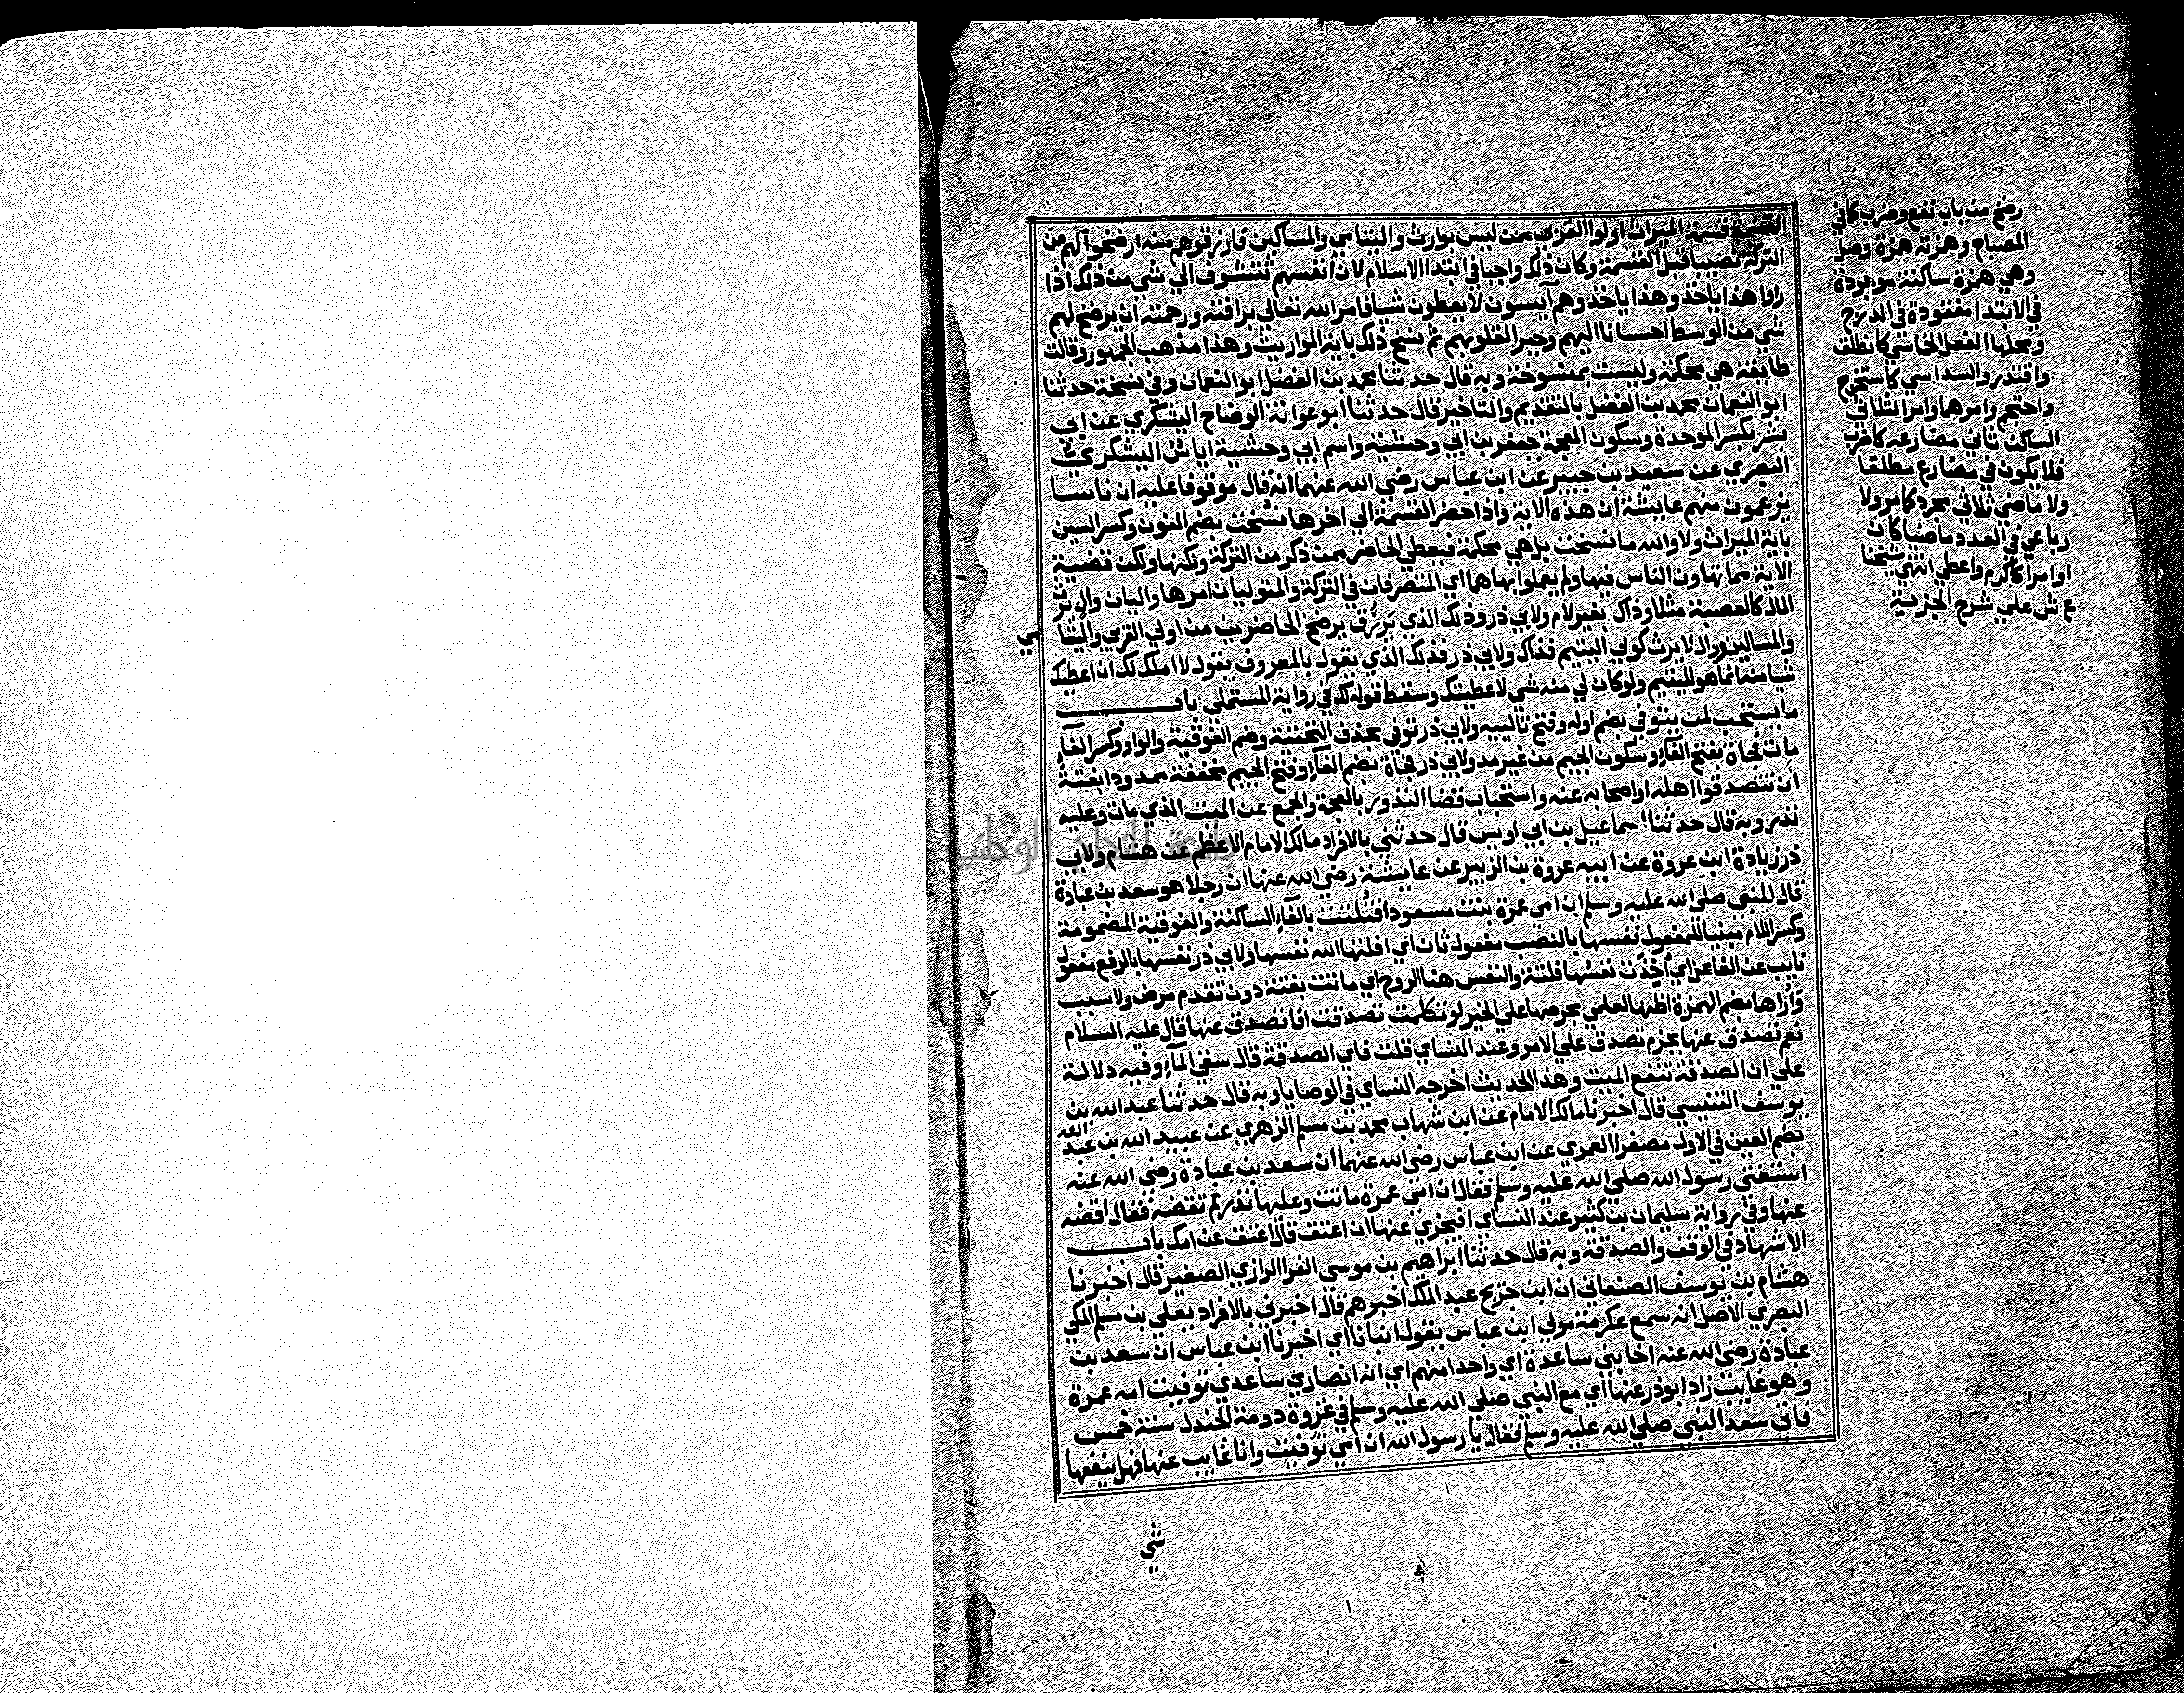 القسمة قسمة الميراث اولوا القربى ممن ليس بوارث واليتامي والمساكين فارزقوهم منه ارضخوا لهم من
التركة نصيبا قبل القسمة وكان ذلك واجبا في ابتدا الاسلام لان انفسهم تتشوف الي شي من ذلك اذا
راوا هذا ياخذ وهذا ياخذ وهم آيسون لا يعطون شيا فامر الله تعالي برافته ورحمته ان يرضخ لهم
شي من الوسط احسانا اليهم وجبرا لقلوبهم ثم نسخ ذلك باية المواريث وهذا مذهب الجمهور وقالت
طايفة هي محكمة وليست بمنسوخة وبه قال حدثنا محمد بن الفضل ابو النعمان وفي نسخة حدثنا
ابو النعمان محمد بن الفضل بالتقديم والتاخير قال حدثنا ابو عوانة الوضاح اليشكري عن ابي
بشر بكسر الموحدة وسكون المعجمة جعفر بن ابي وحشية واسم ابي وحشية اياس اليشكري
البصري عن سعيد بن جبير عن ابن عباس رضي الله عنهما انه قال موقوفا عليه ان ناسا
يزعمون منهم عايشة ان هذه الاية واذا حضر القسمة الي اخرها نسخت بضم النون وكسر السين
باية الميراث ولا والله ما نسخت بل هي محكمة فيعطي الحاضر ممن ذكر من التركة ولكنها ولكن قضية
الاية مما تهاون الناس فيها ولم يعملوا بها هما اي المتصرفان في التركة والمتوليان امرها واليان وال يرث
المال كالعصبة مثلا وذاك بغير لام ولابي ذر وذلك الذي يَرزُق يرضخ الحاضرين من اولي القربي واليتا
مي
والمساكين وال لا يرث كولي اليتيم فذاك ولابي ذر فذلك الذي يقول بالمعروف يقول لا املك لك ان اعطيك
شيا منه انما هو لليتيم ولو كان لي منه شي لاعطيتك وسقط قوله لك في رواية المستملي باب
ما يستحب لمن يتوفي بضم اوله وفتح تالييه ولابي ذر توفي بحذف التحتية وضم الفوقية والواو وكسر الفاء
مات فجاة بفتح الفاء وسكون الجيم من غير مد ولابي ذر فجاة بضم الفاء وفتح الجيم مخففة ممدودا بغتة
ان يتصدقوا اهله او اصحابه عنه واستحباب قضا النذور بالمعجمة والجمع عن الميت الذي مات وعليه
نذر وبه قال حدثنا اسماعيل بن ابي اويس قال حدثني بالافراد مالك الامام الاعظم عن هشام ولابي
ذر زيادة ابن عروة عن ابيه عروة بن الزبير عن عايشة رضي الله عنها ان رجلا هو سعد بن عبادة
قال للنبي صلي الله عليه وسلم ان امي عمرة بنت مسعود افتلتت بالفاء الساكنة والفوقية المضمومة
وكسر اللام مبنيا للمفعول نفسها بالنصب مفعول ثان اي افلتها الله نفسها ولابي ذر نفسها بالرفع مفعول
نايب عن الفاعل اي أخِذَت نفسُها فلتة والنفس هنا الروح اي ماتت بغتة دون تقدم مرض ولا سبب
وأراها بضم الهمزة اظنها لعلمي بحرصها علي الخير لو تكلمت تصدقت افاتصدق عنها قال عليه السلام
نعم تصدق عنها بجزم تصدق علي الامر وعند النساي قلت فاي الصدقة قال سقي المآء وفيه دلالة
علي ان الصدقة تنفع الميت وهذا الحديث اخرجه النساي في الوصايا وبه قال حدثنا عبد الله بن
يوسف التنيسي قال اخبرنا مالك الامام عن ابن شهاب محمد بن مسلم الزهري عن عبيد الله بن عبد الله
بضم العين في الاول مصغرا العمري عن ابن عباس رضي الله عنهما ان سعد بن عبادة رضي الله عنه
استفتي رسول الله صلي الله عليه وسلم فقال ان امي عمرة ماتت وعليها نذر لم تقضه فقال اقضه
عنها وفي رواية سليمان بن كثير عند النساي افيجزي عنها ان اعتق قال اعتق عن امك باب
الاشهاد في الوقف والصدقة وبه قال حدثنا ابراهيم بن موسي الفرا الرازي الصغير قال اخبرنا
هشام بن يوسف الصنعاني ان ابن جريج عبد الملك اخبرهم قال اخبرني بالافراد يعلي بن مسلم المكي
البصري الاصل انه سمع عكرمة مولي ابن عباس يقول انبانا اي اخبرنا ابن عباس ان سعد بن
عبادة رضي الله عنه اخا بني ساعدة اي واحدا منهم اي انه انصاري ساعدي توفيت امه عمرة
وهو غايب زاد ابو ذر عنها اي مع النبي صلي الله عليه وسلم في غزوة دومة الجندل سنة خمس
فاتي سعد النبي صلي الله عليه وسلم فقال يا رسول الله ان امي توفيت وانا غايب عنها فهل ينفعها
شي
رضخ من باب نفع وضرب كما في
المصباح وهمزته همزة وصل
وهي همزة ساكنة موجودة
في الابتدا مفقودة في الدرج
ومحلها الفعل الخماسي كانطلق
واقتدر والسداسي كاستخرج
واحتيم وامرهما وامر الثلاثي
الساكن ثاني مضارعه كاضرب
فلا يكون في مضارع مطلقا
ولا ماضي ثلاثي مجرد كامر ولا
رباعي في العدد ماضيا كان
او امرا كاكرم واعطي انتهي شيخنا
ع ش علي شرح الجزرية
جامعة النجاح الوطنية